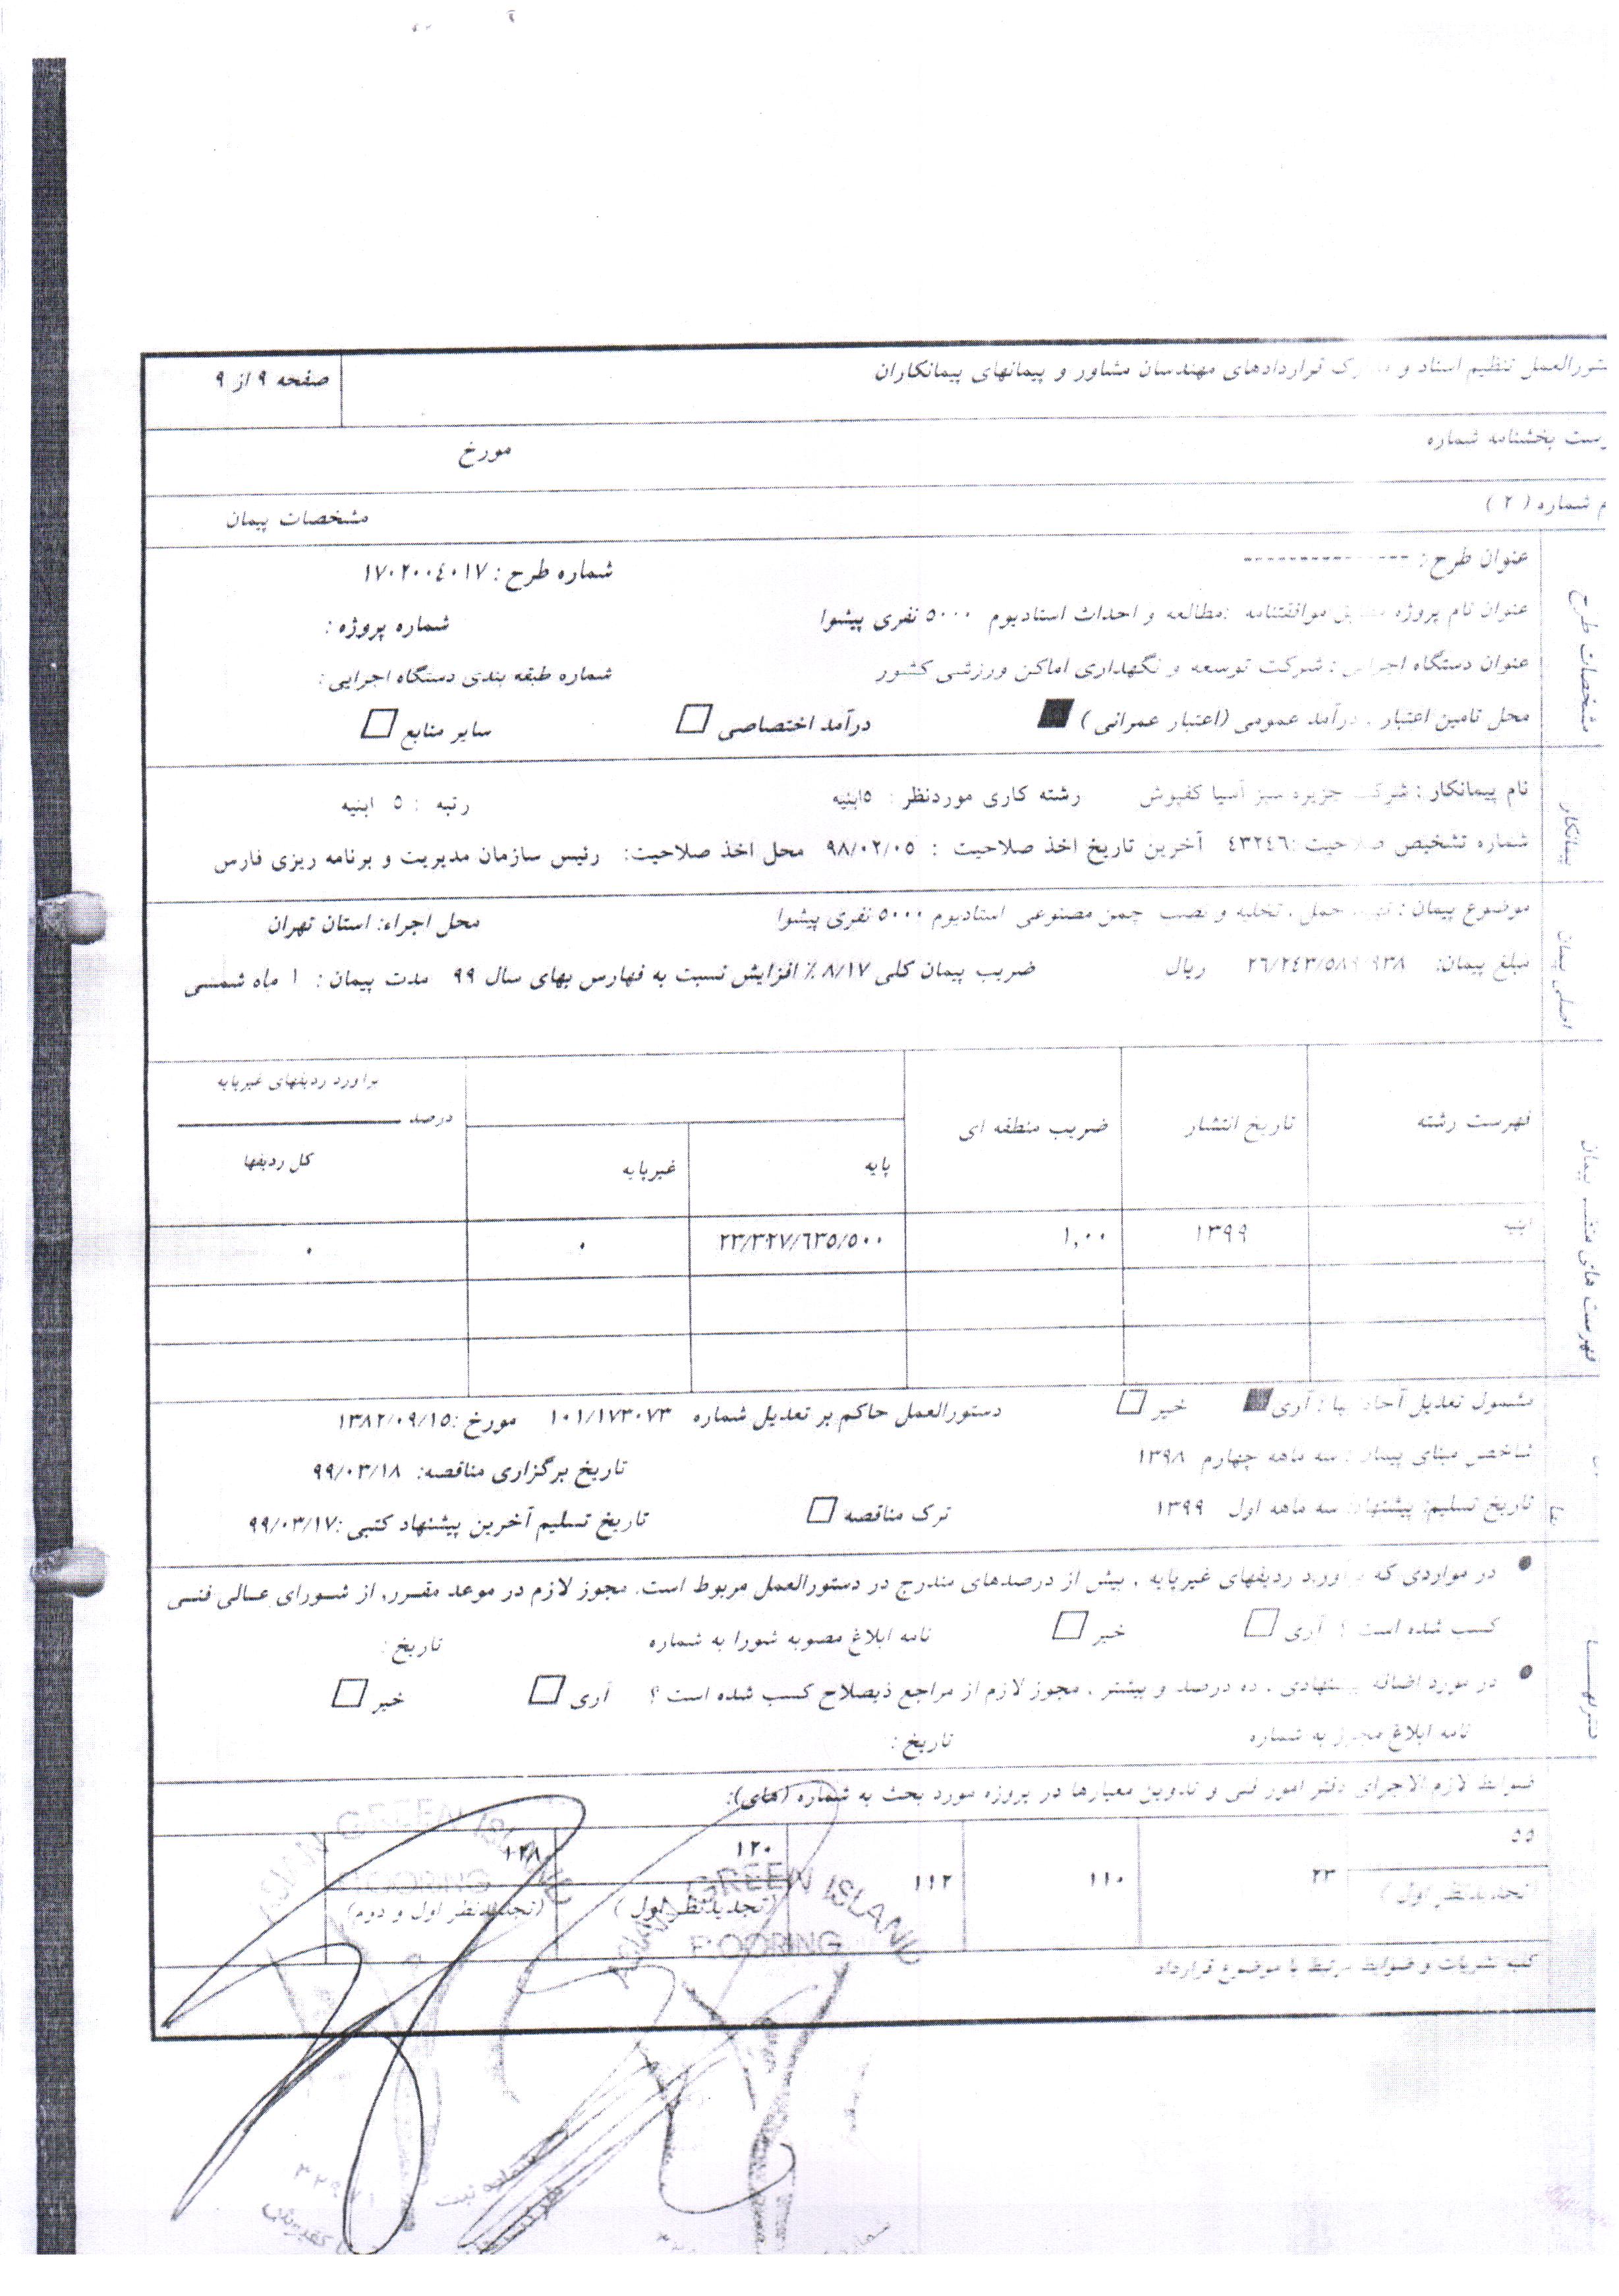 تنظیم اسناد و قراردادهای مهندسان مشاور و پیمانهای پیمانکاران
صفحه ۹ از ۹
بخشنامه شماره
مورخ
شماره ( ۲ )
مشخصات پیمان
مشخصات طرح
عنوان طرح : --------------
شماره طرح : ۱۷۰۲۰۰٤۰۱۷
عنوان نام پروژه موافقتنامه :مطالعه و احداث استادیوم ۵۰۰۰ نفری پیشوا
شماره پروژه :
عنوان دستگاه اجرایی : شرکت توسعه و نگهداری اماکن ورزشی کشور
شماره طبقه بندی دستگاه اجرایی :
محل تامین اعتبار . درآمد عمومی (اعتبار عمرانی ) ■ درآمد اختصاصی □ سایر منابع □
پیمانکار
نام پیمانکار : شرکت جزیره سبز آسیا کفپوش رشته کاری موردنظر : ۵ابنیه رتبه : ۵ ابنیه
شماره تشخیص صلاحیت :٤۳۲٤٦ آخرین تاریخ اخذ صلاحیت : ۹۸/۰۲/۰۵ محل اخذ صلاحیت: رئیس سازمان مدیریت و برنامه ریزی فارس
موضوع پیمان : حمل ، تخلیه و نصب چمن مصنوعی استادیوم ۵۰۰۰ نفری پیشوا
محل اجراء: استان تهران
مبلغ پیمان: ۲٦/۲٤۳/۵۸۹ ۹۳۸ ریال ضریب پیمان کلی ۸/۱۷ ٪ افزایش نسبت به فهارس بهای سال ۹۹ مدت پیمان : ۱ ماه شمسی
فهرست رشته
تاریخ انتشار
ضریب منطقه ای
پایه
غیرپایه
براورد ردیفهای غیرپایه
درصد
کل ردیفها
ابنیه ۱۳۹۹ ۱,۰۰ ۲۳/۳۲۷/٦۳۵/۵۰۰ ۰ ۰
مشمول تعدیل آحاد بها : آری ■ خیر □ دستورالعمل حاکم بر تعدیل شماره ۱۰۱/۱۷۳۰۷۳ مورخ :۱۳۸۲/۰۹/۱۵
شاخص مبنای پیمان : سه ماهه چهارم ۱۳۹۸
تاریخ برگزاری مناقصه: ۹۹/۰۳/۱۸
تاریخ تسلیم پیشنهاد: سه ماهه اول ۱۳۹۹ ترک مناقصه □ تاریخ تسلیم آخرین پیشنهاد کتبی :۹۹/۰۳/۱۷
• در مواردی که براورد ردیفهای غیرپایه ، بیش از درصدهای مندرج در دستورالعمل مربوط است، مجوز لازم در موعد مقرر، از شورای عالی فنی
کسب شده است ؟ آری □ خیر □ نامه ابلاغ مصوبه شورا به شماره تاریخ :
• در مورد اضافه پیشنهادی ، ده درصد و بیشتر ، مجوز لازم از مراجع ذیصلاح کسب شده است ؟ آری □ خیر □
نامه ابلاغ مجوز به شماره تاریخ :
ضوابط لازم الاجرای دفتر امور فنی و تدوین معیارها در پروژه مورد بحث به شماره (های):
۵۵
(تجدیدنظر اول)
۲۳
۱۱۰
۱۱۲
۱۲۰
(تجدیدنظر اول )
۱۲۸
(تجدیدنظر اول و دوم)
کلیه نشریات و ضوابط مرتبط با موضوع قرارداد
ASIAN GREEN ISLAND
FLOORING
ASIAN GREEN ISLAND
FLOORING
شماره ثبت